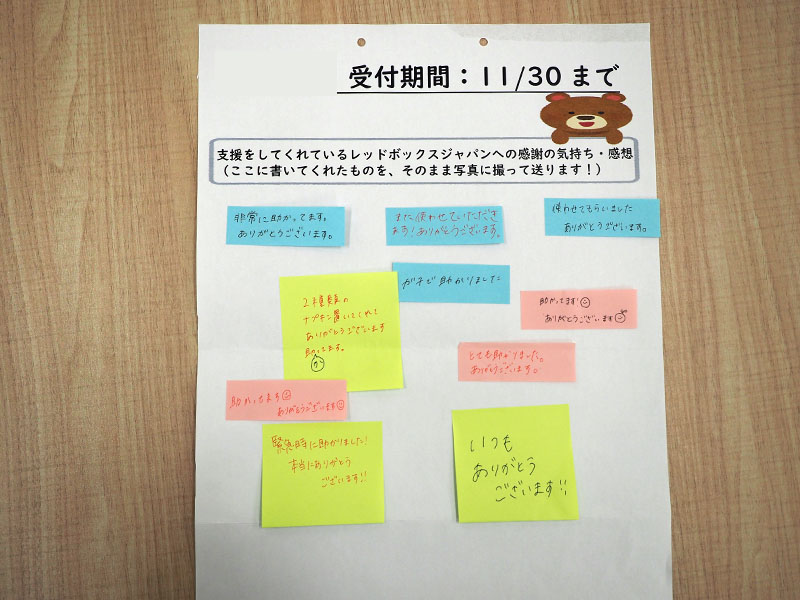 受付期間：11/30 まで
支援をしてくれているレッドボックスジャパンへの感謝の気持ち・感想
（ここに書いてくれたものを、そのまま写真に撮って送ります！）
非常に助かってます。
ありがとうございます。
また使わせていただき
ます！ありがとうございます。
使わせてもらいました
ありがとうございます。
ガチで助かりました
2種類の
ナプキン置いてくれて
ありがとうございます
助かってます。
助かってます
ありがとうございます
とても助かりました。
ありがとうございます。
助かってます
ありがとうございます
緊急時に助かりました！
本当にありがとう
ございます!!
いつも
ありがとう
ございます!!